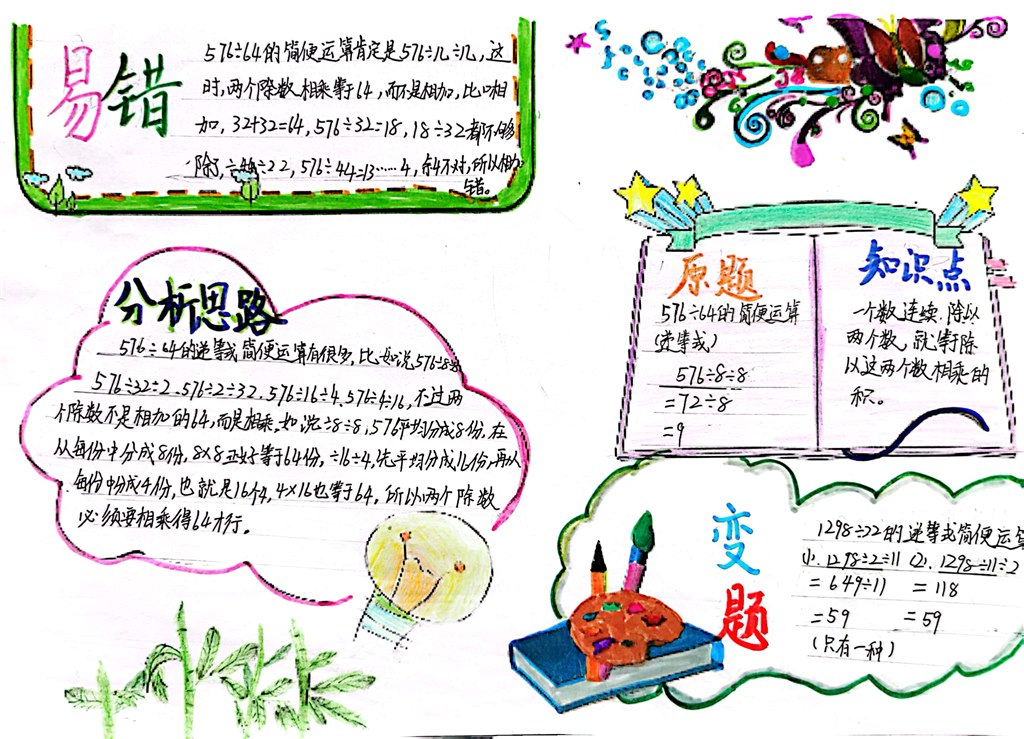 易错
576÷64的简便运算肯定是576÷几÷几,这
时,两个除数相乘等于64,而不是相加,比如相
加,32+32=64,576÷32=18,18÷32都不够
除了,÷44÷22,576÷44=13……4,
不对,所以相加
错。
原题
576÷64的简便运算
(递等式)
576÷8÷8
=72÷8
=9
知识点
一个数连续除以
两个数,就等于除
以这两个数相乘的
积。
分析思路
576÷64的递等式简便运算有很多,比如说576÷8÷8
576÷32÷2、576÷2÷32、576÷16÷4、576÷4÷16,不过两
个除数不是相加的64,而是相乘,如说÷8÷8,576平均分成8份,在
从每份中分成8份,8×8正好等于64份,÷16÷4,先平均分成16份,再从
每份中份成4份,也就是16个4,4×16也等于64,所以两个除数
必须要相乘得64才行。
变题
1298÷22的递等式简便运算
(1).1298÷2÷11 (2).1298÷11÷2
=649÷11 =118
=59 =59
(只有一种)